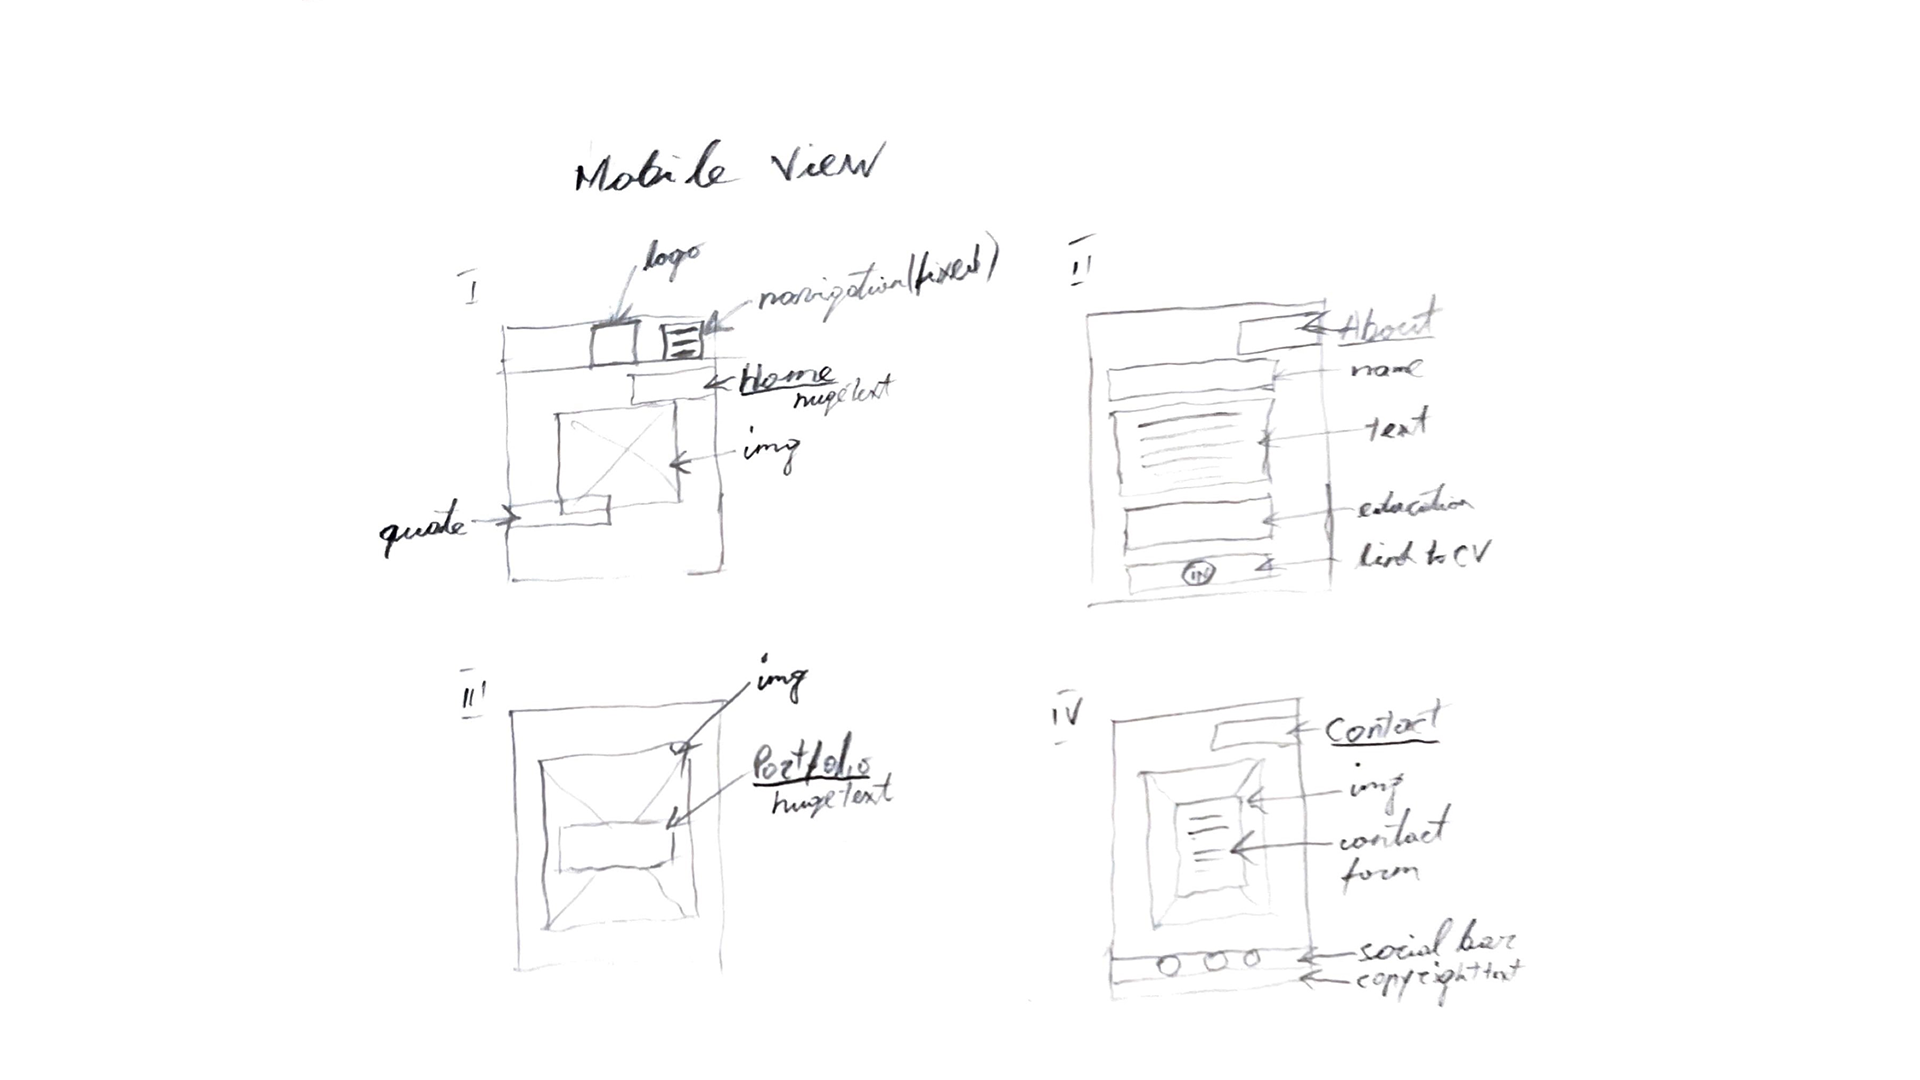 Mobile View
I
logo
navigation (fixed)
Home
huge text
img
quote
II
About
name
text
education
link to CV
IN
III
img
Portfolio
huge text
IV
Contact
img
contact
form
social bar
copyright text